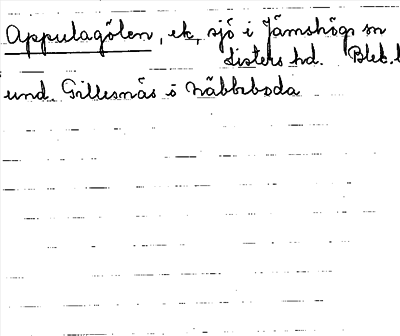 Appulagölen, ek, sjö i Jämshögs sn
Listers hd. Blek. l
und. Gillesnäs o Näbbeboda